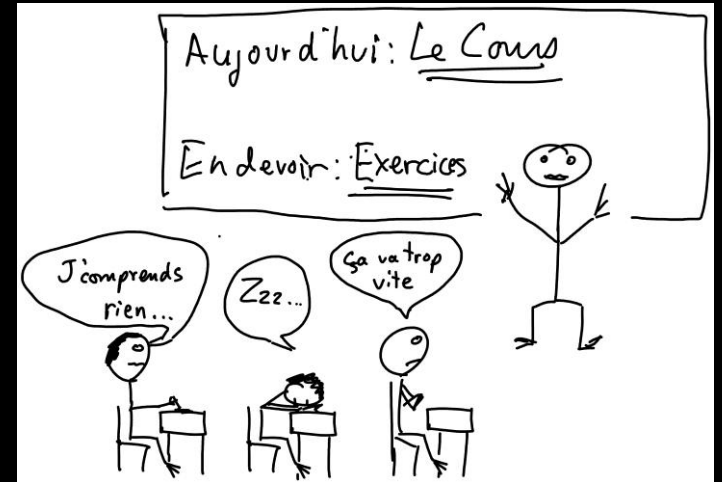 Aujourd'hui: Le Cours
En devoir: Exercices
J'comprends
rien...
Zzz...
Ça va trop
vite